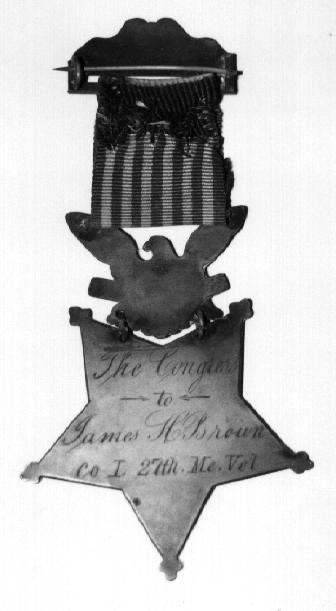 The Congress
to
James H Brown
Co I 27th. Me. Vol